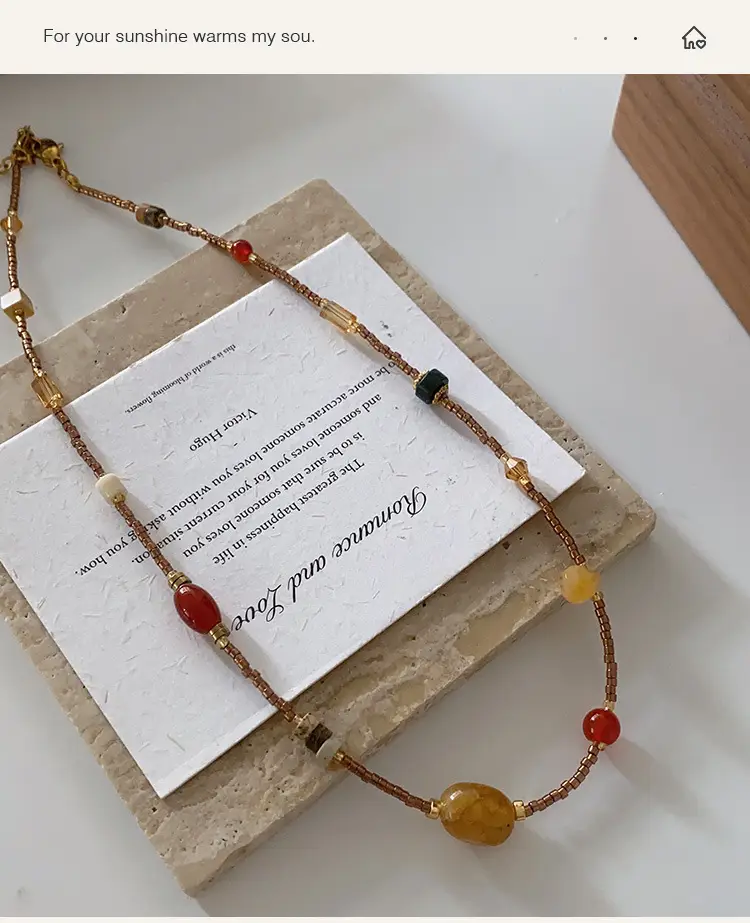 For your sunshine warms my sou.
Romance and Love
The greatest happiness in life
is to be sure that someone loves you
and someone loves you for your current situation.
be more accurate someone loves you without asking you how.
Victor Hugo
this is a world of blooming flowers.